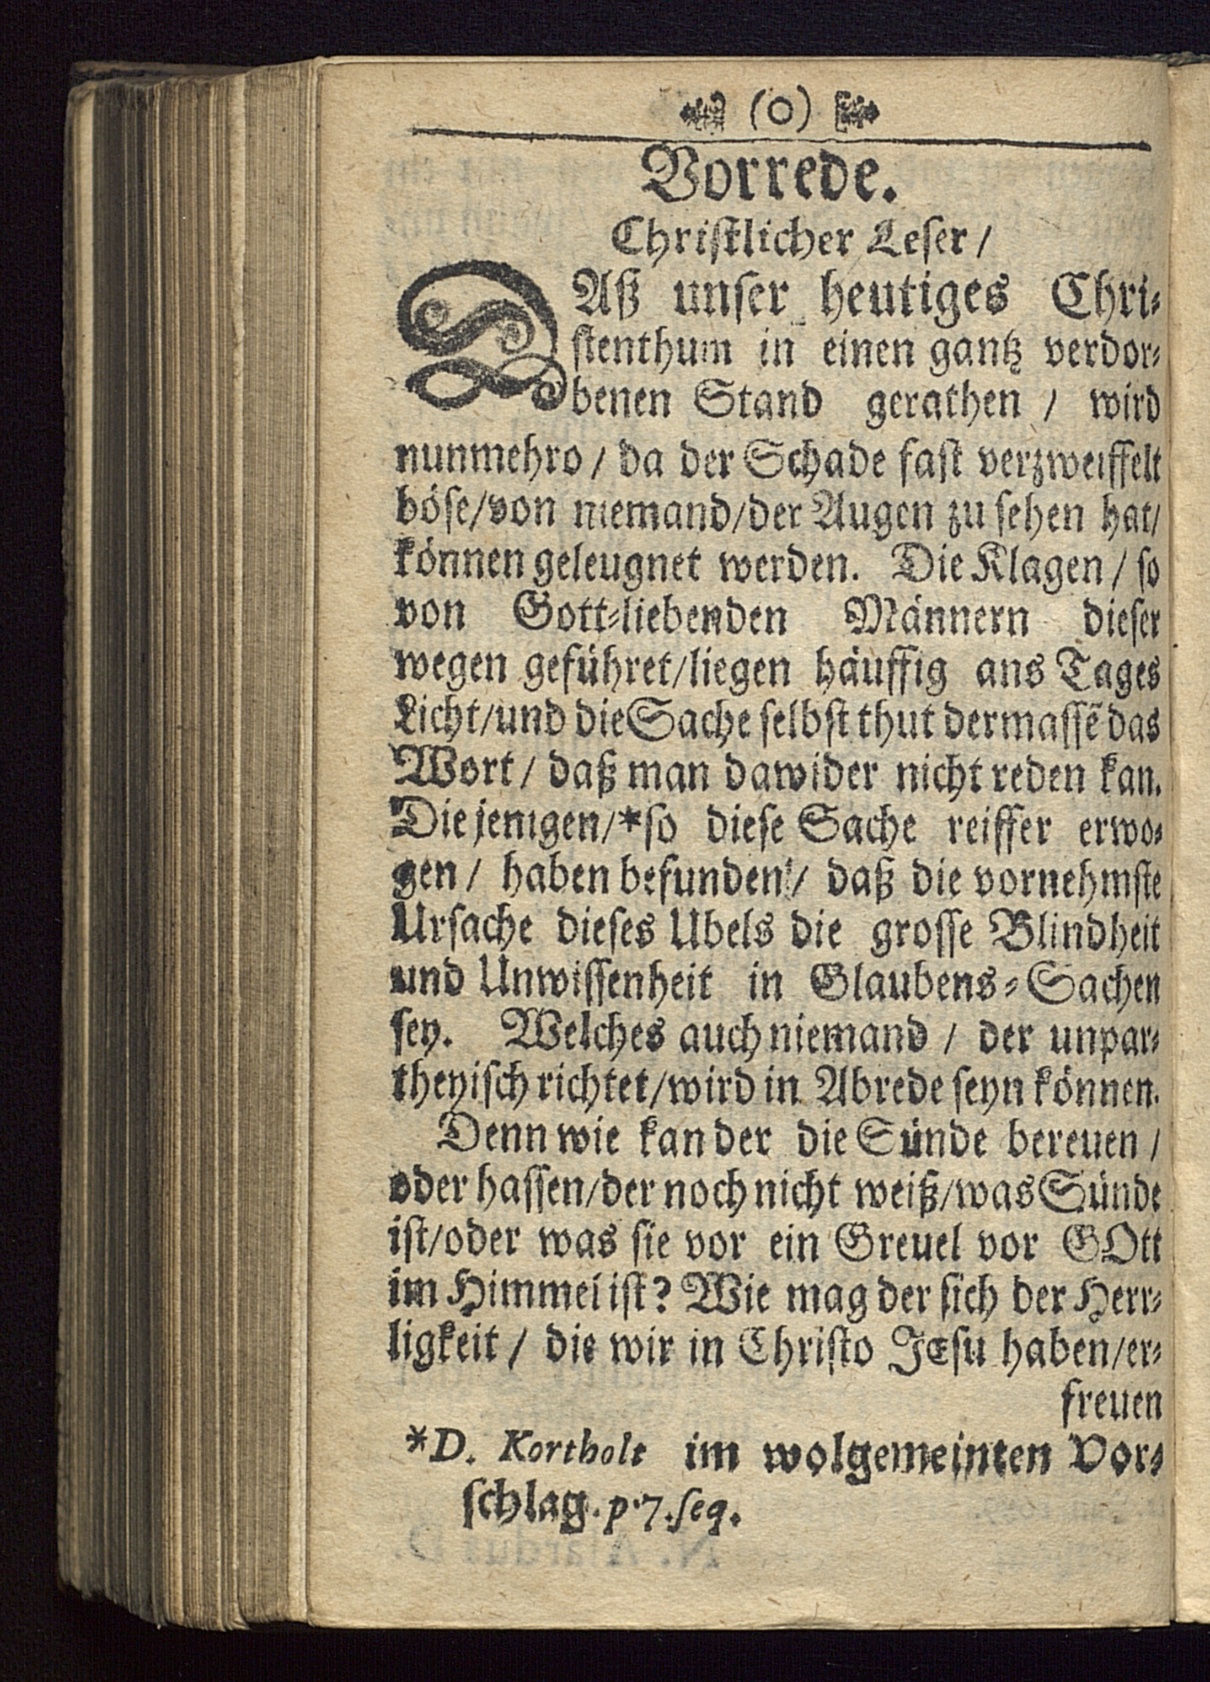 (0)
Vorrede.
Christlicher Leser /
DAß unser heutiges Chri-
stenthum in einen gantz verdor-
benen Stand gerathen / wird
nunmehro / da der Schade fast verzweiffelt
böse/von niemand/der Augen zu sehen hat/
können geleugnet werden. Die Klagen / so
von Gott-liebenden Männern dieser
wegen geführet/liegen häuffig ans Tages
Licht/und die Sache selbst thut dermassē das
Wort / daß man dawider nicht reden kan.
Die jenigen/*so diese Sache reiffer erwo-
gen / haben befunden / daß die vornehmste
Ursache dieses Ubels die grosse Blindheit
und Unwissenheit in Glaubens-Sachen
sey. Welches auch niemand / der unpar-
theyisch richtet/wird in Abrede seyn können.
Denn wie kan der die Sünde bereuen /
oder hassen/der noch nicht weiß/was Sünde
ist/oder was sie vor ein Greuel vor GOtt
im Himmel ist? Wie mag der sich der Herr-
ligkeit / die wir in Christo JEsu haben/er-
freuen
*D. Kortholt im wolgemeinten Vor-
schlag. p. 7. seq.